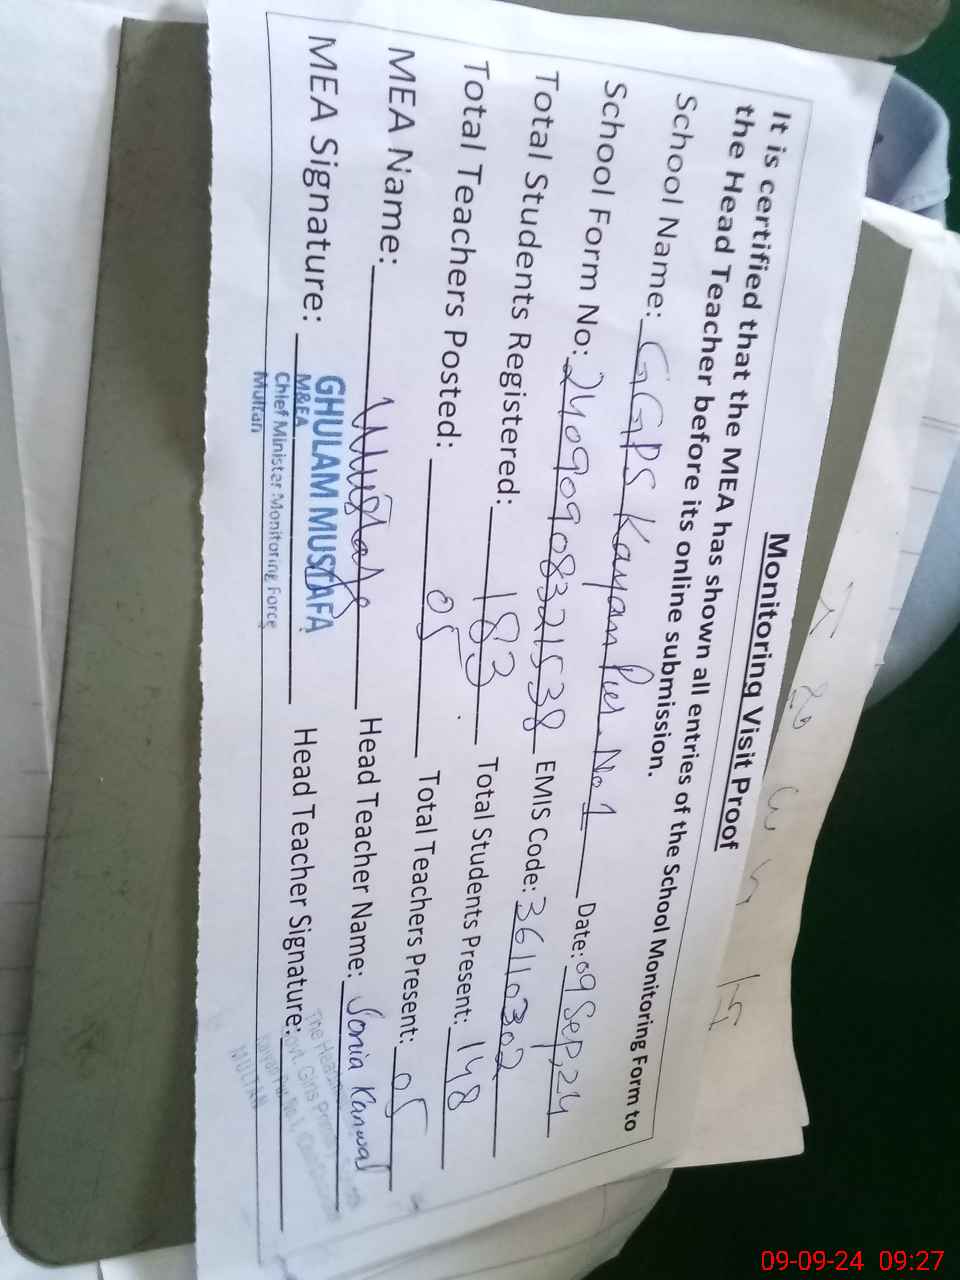 Monitoring Visit Proof
It is certified that the MEA has shown all entries of the School Monitoring Form to
the Head Teacher before its online submission.
School Name: GGPS Kayan Pur No 1 Date: 09 Sep, 24
School Form No: 240909083221538 EMIS Code: 36110302
Total Students Registered: 183 Total Students Present: 148
Total Teachers Posted: 05 Total Teachers Present: 05
MEA Name: Head Teacher Name: Sonia Kanwal
MEA Signature: Head Teacher Signature:
GHULAM MUSTAFA
M&EA
Chief Minister Monitoring Force
Multan
The Head
Govt. Girls Primary
No.1
MULTAN
09-09-24 09:27